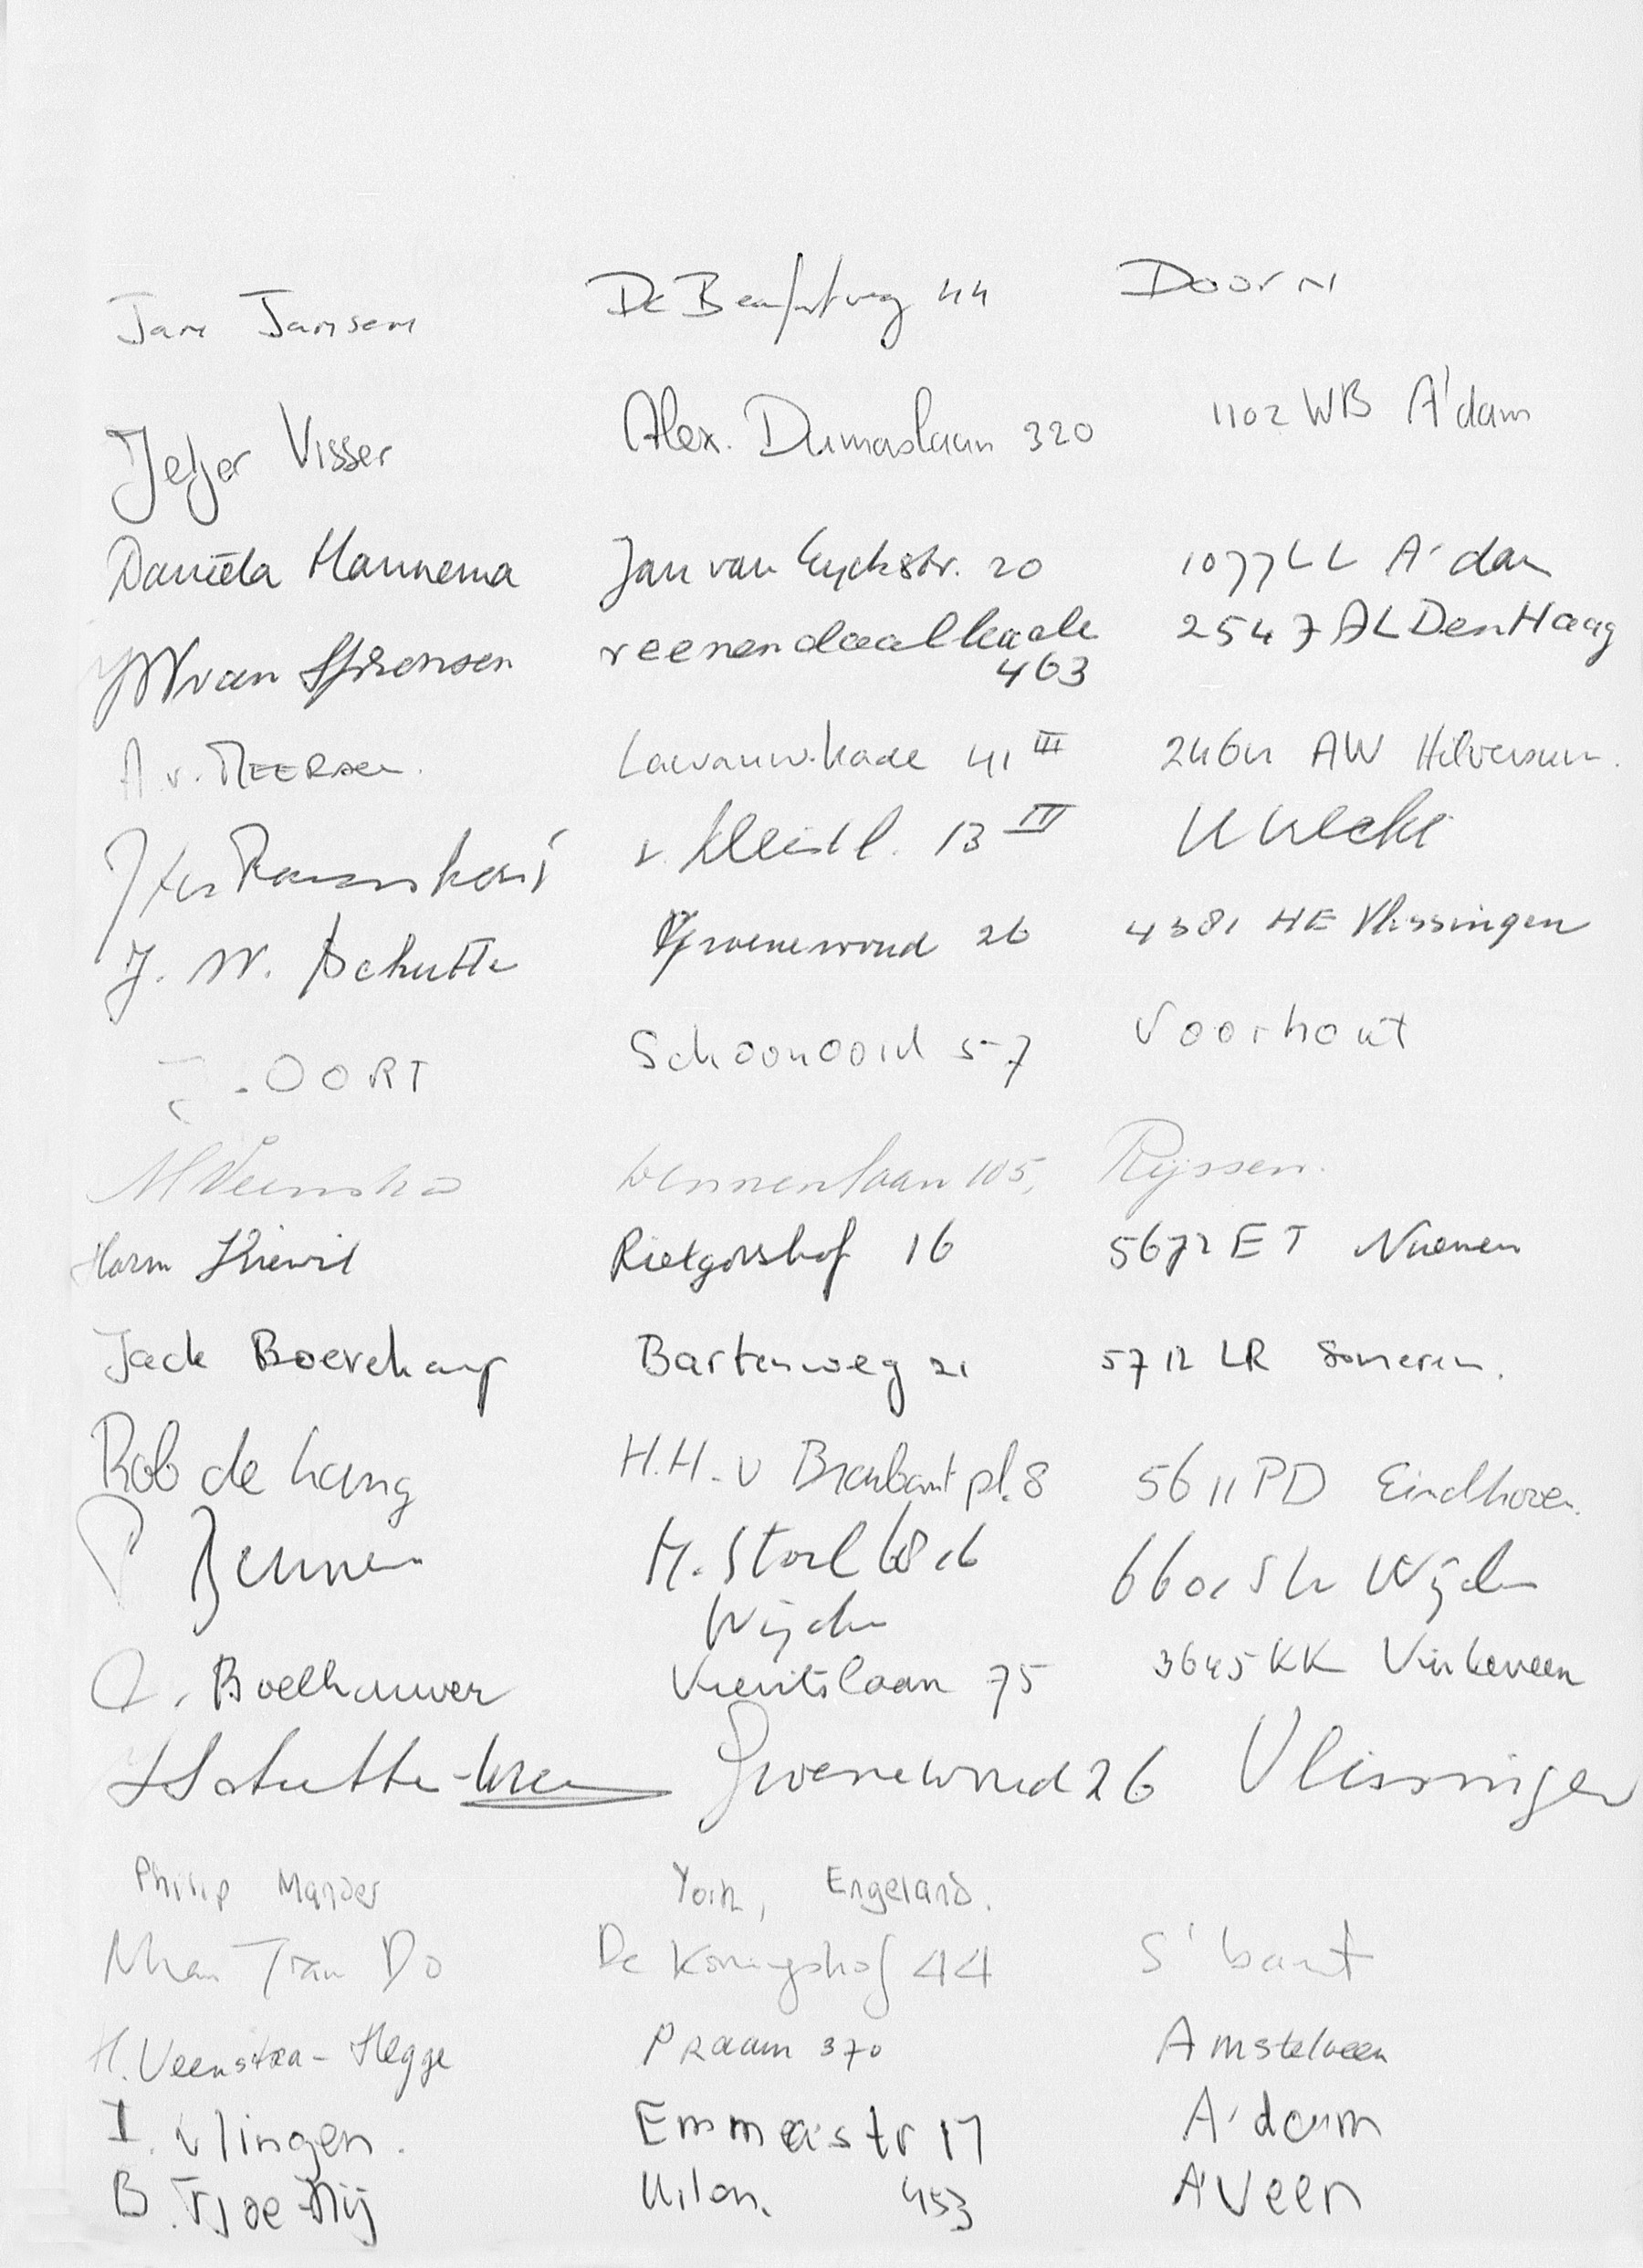 Jan Jansen De Beaufortweg 44 Doorn
Jetjer Visser Alex. Dumaslaan 320 1102 WB A'dam
Daniëla Hannema Jan van Eyckstr. 20 1077 LL A'dam
van reenendaalkade 2547 AL Den Haag
463
A v. MEERSEN. kade 41 III AW Hilversum.
13 IV Utrecht
J. W. Schutte Groenewoud 26 4381 HE Vlissingen
J. OORT Schoonoord 57 Voorhout
M Veenstra Dennenlaan 105, Rijssen.
Harm Kiewit Rietgorshof 16 5672 ET Nuenen
Jack Boerekamp Bartenweg 21 5712 LR Someren.
Rob de Lang H.H. v Brabant pl. 8 5611 PD Eindhoven.
P M. Wijchen
Wijchen
Q. Boelhouwer Vrentslaan 75 3645 KK Vinkeveen
Schutte- Groenewoud 26 Vlissingen
Philip Mander York, Engeland.
Nhan Tran Do De Koningshof 44 S'bant
H. Veenstra-Hegge Praam 370 Amstelveen
I. Vlingen. Emmastr 17 A'dam
B. Tjoe-Nij Uilen. 453 A'Veen